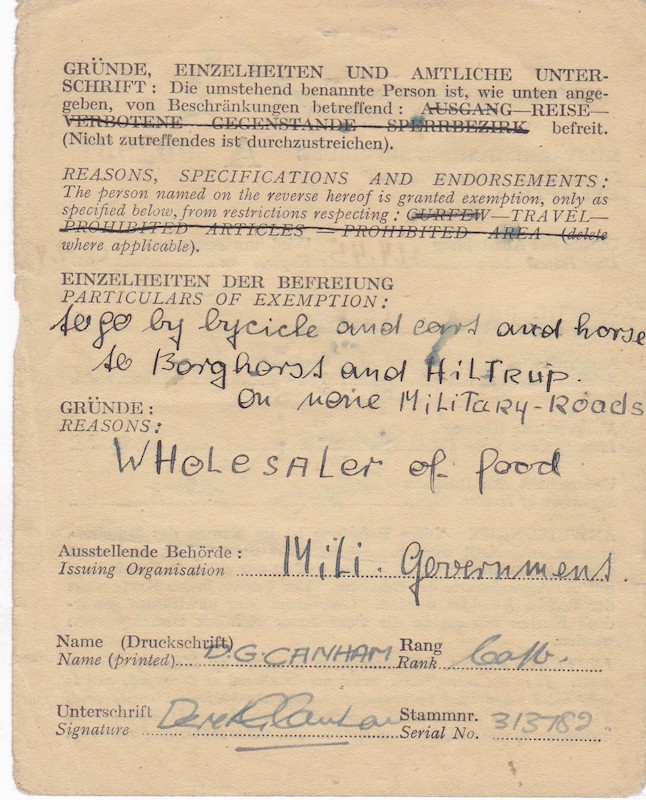 GRÜNDE, EINZELHEITEN UND AMTLICHE UNTER-
SCHRIFT: Die umstehend benannte Person ist, wie unten ange-
geben, von Beschränkungen betreffend: AUSGANG—REISE—
VERBOTENE GEGENSTANDE—SPERRBEZIRK befreit.
(Nicht zutreffendes ist durchzustreichen).
REASONS, SPECIFICATIONS AND ENDORSEMENTS:
The person named on the reverse hereof is granted exemption, only as
specified below, from restrictions respecting: CURFEW—TRAVEL—
PROHIBITED ARTICLES—PROHIBITED AREA (delete
where applicable).
EINZELHEITEN DER BEFREIUNG
PARTICULARS OF EXEMPTION:
to go by bycicle and cart and horse
to Borghorst and HiLTRUP.
on none MiLiTARY-ROADS
GRÜNDE:
REASONS:
WHOLESALer of food
Ausstellende Behörde:
Issuing Organisation Mili. Government.
Name (Druckschrift)
Name (printed) D.G. CANHAM Rang
Rank Capt.
Unterschrift
Signature Derek G. Canham Stammnr.
Serial No. 313789